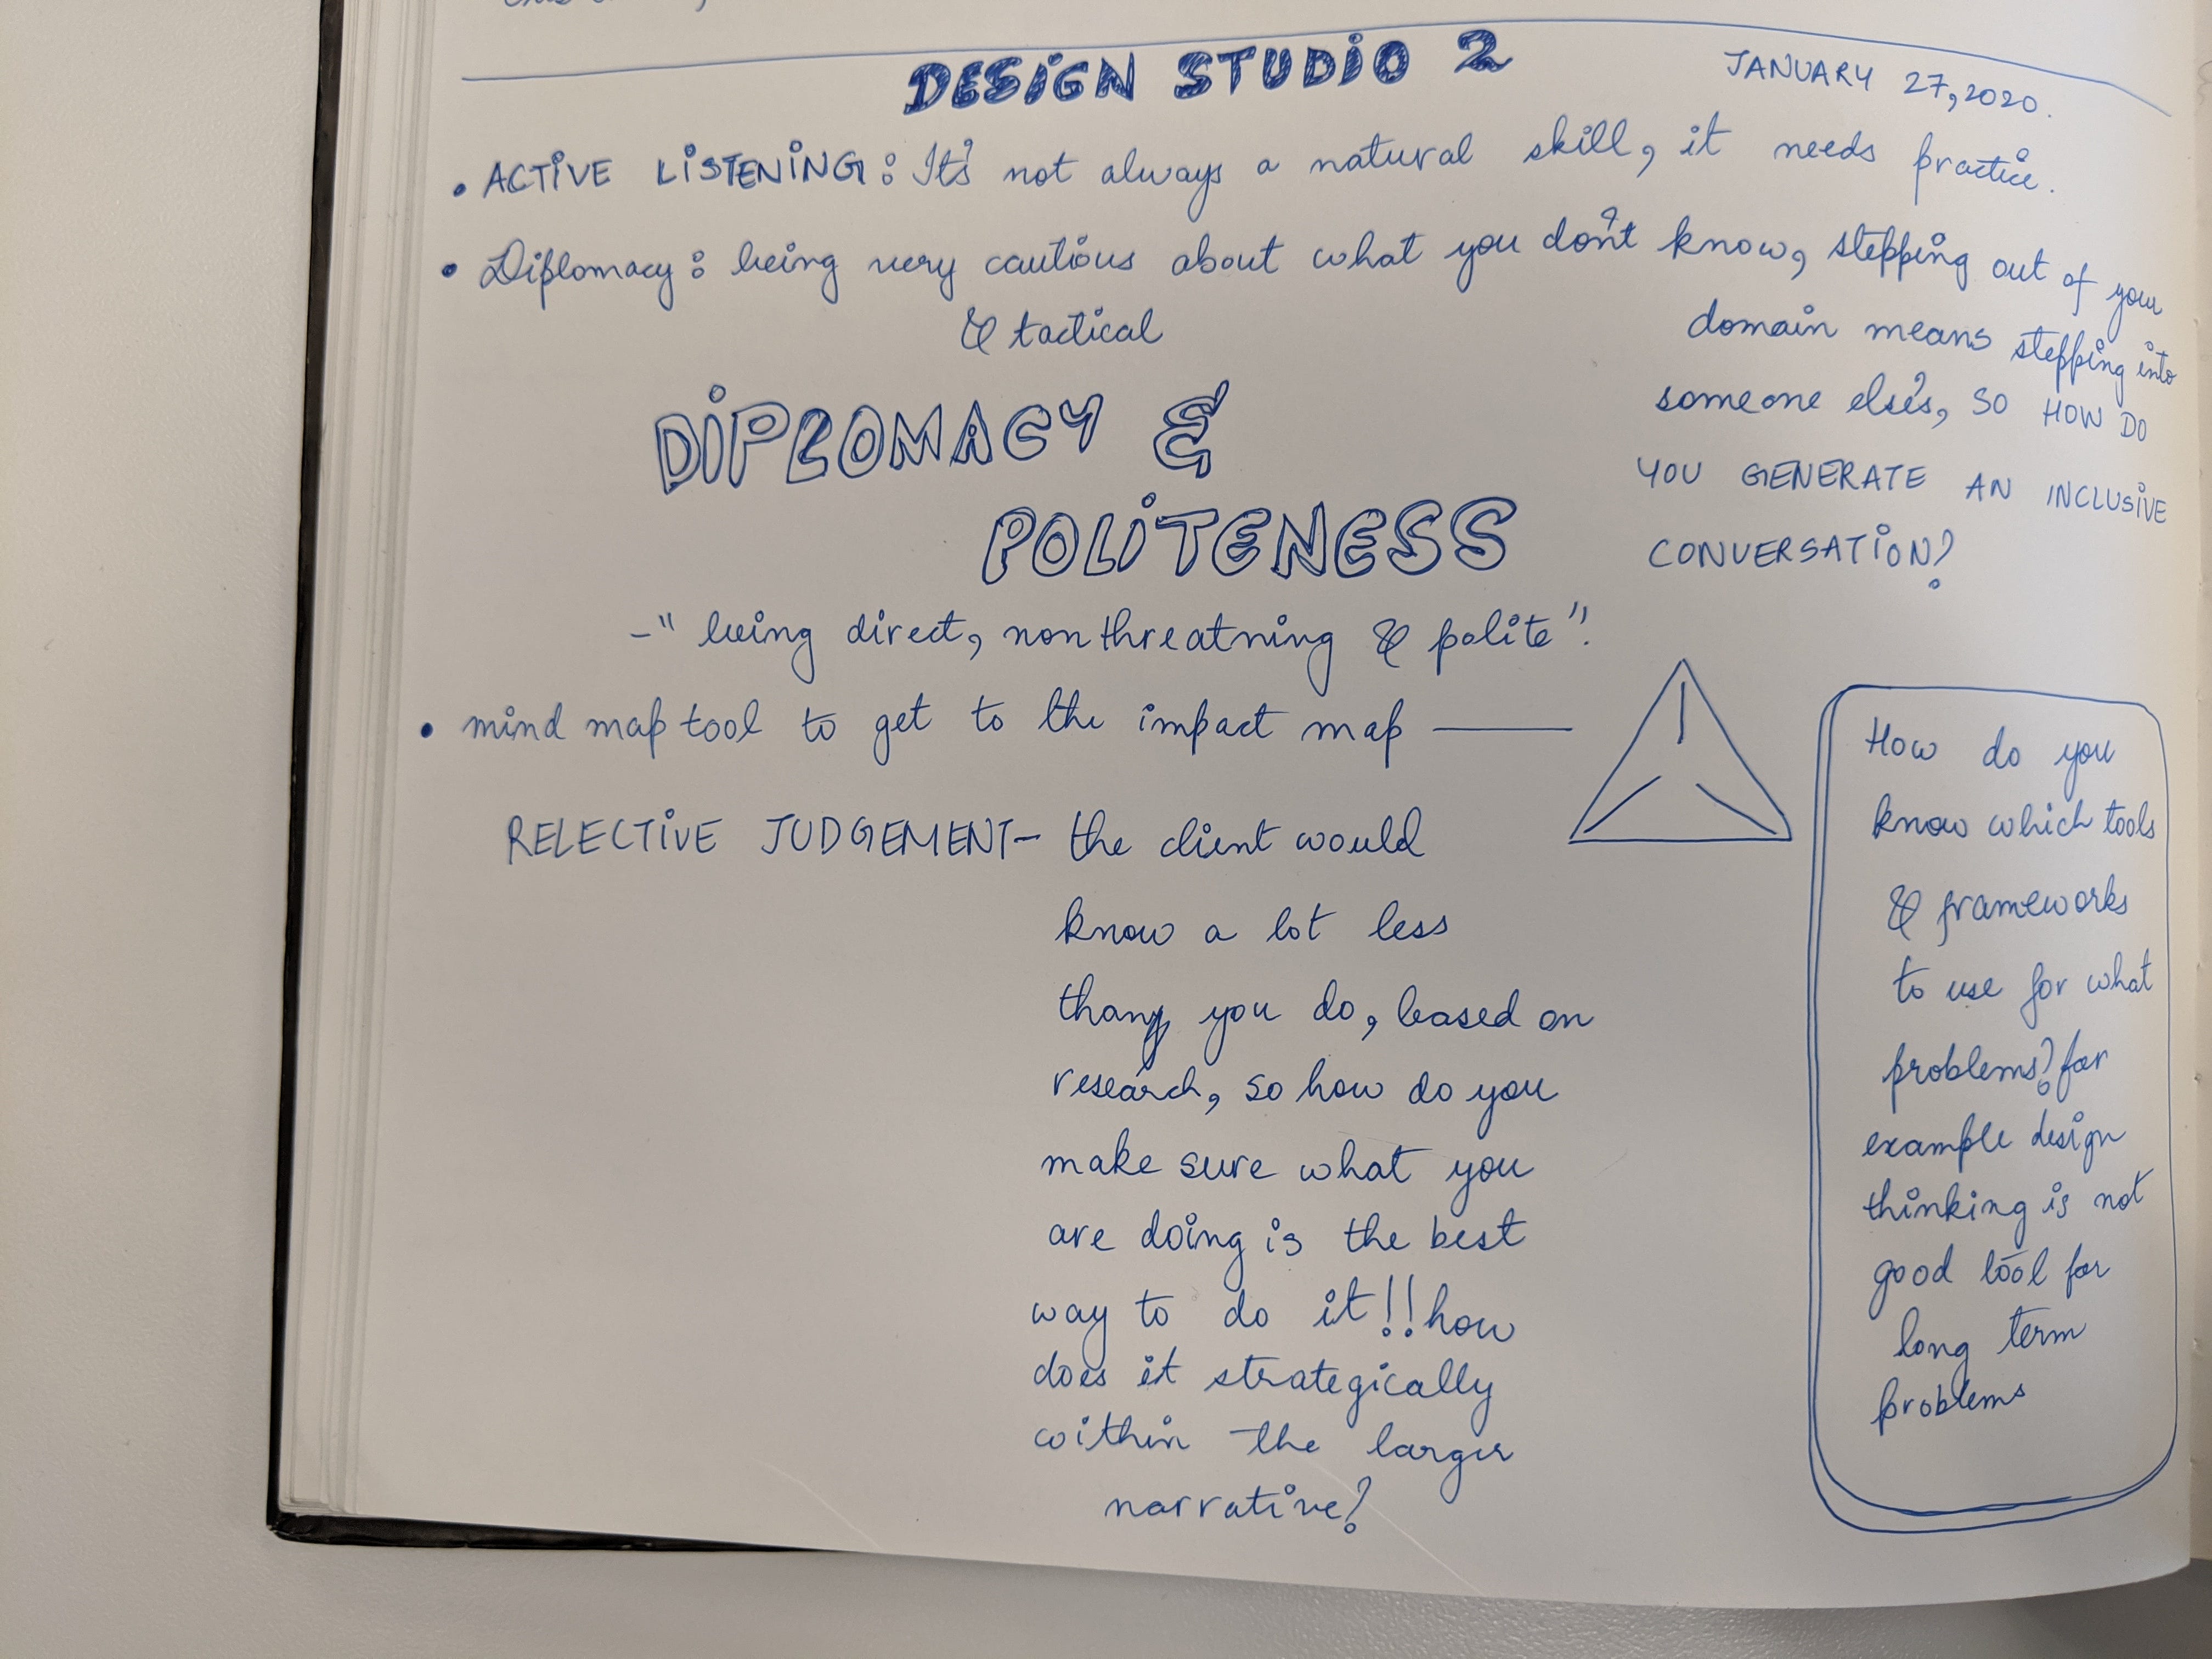 DESIGN STUDIO 2
JANUARY 27, 2020.
• ACTIVE LISTENING: It's not always a natural skill, it needs practice.
• Diplomacy: being very cautious about what you don't know, stepping out of your
& tactical
domain means stepping into
someone else's, so HOW DO
YOU GENERATE AN INCLUSIVE
CONVERSATION?
DIPLOMACY &
POLITENESS
- "being direct, nonthreatning & polite".
• mind map tool to get to the impact map
RELECTIVE JUDGEMENT- the client would
know a lot less
than you do, based on
research, so how do you
make sure what you
are doing is the best
way to do it!! how
does it strategically
within the larger
narrative?
How do you
know which tools
& frameworks
to use for what
problems? for
example design
thinking is not
good tool for
long term
problems